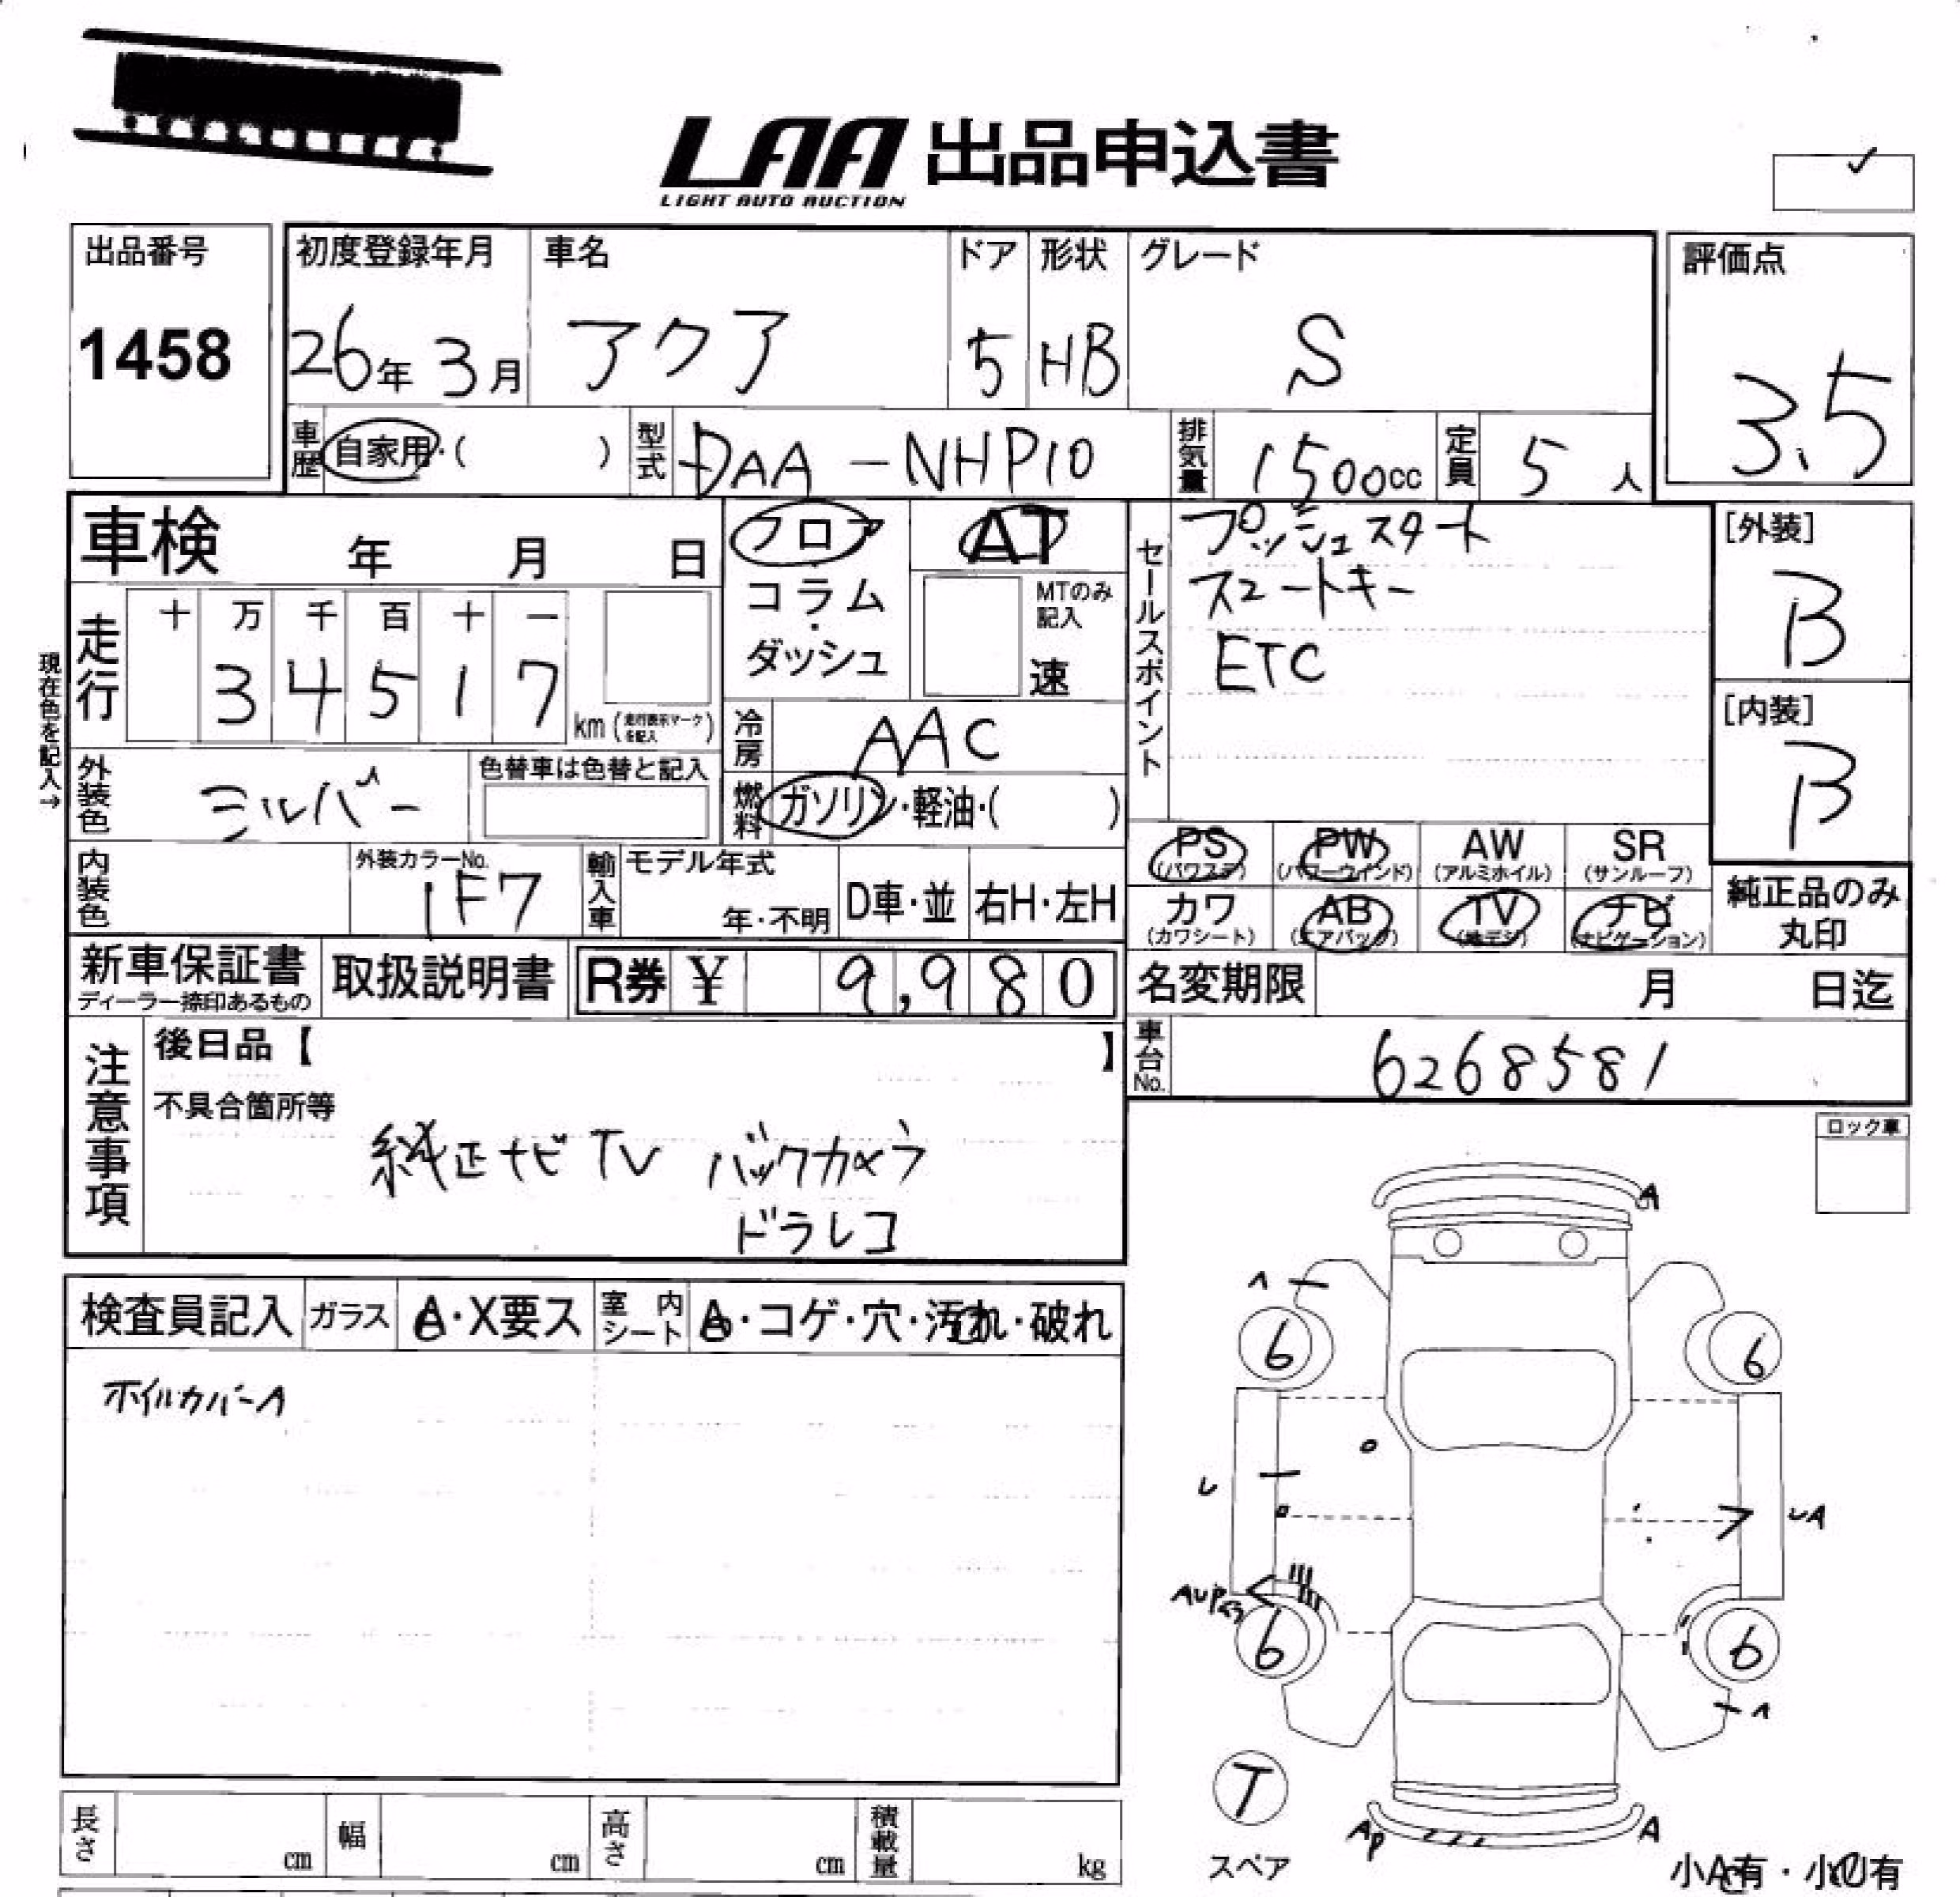 LAA 出品申込書
LIGHT AUTO AUCTION
出品番号
1458
初度登録年月
26年 3月
車名
アクア
ドア
5
形状
HB
グレード
S
評価点
3.5
車歴
自家用・( )
型式
DAA-NHP10
排気量
1500cc
定員
5人
車検 年 月 日
フロア
コラム
・
ダッシュ
AT
MTのみ
記入
速
セールスポイント
プッシュスタート
スマートキー
ETC
[外装]
B
[内装]
B
現在色を記入→
走行
十 万 千 百 十 一
3 4 5 1 7
km (走行表示マークを記入)
冷房
AAC
外装色
シルバー
色替車は色替と記入
燃料
ガソリン・軽油・( )
内装色
外装カラーNo.
1F7
輸入車
モデル年式
年・不明
D車・並
右H・左H
PS
(パワステ)
PW
(パワーウインド)
AW
(アルミホイル)
SR
(サンルーフ)
カワ
(カワシート)
AB
(エアバッグ)
TV
(地デジ)
ナビ
(ナビゲーション)
純正品のみ
丸印
新車保証書
ディーラー捺印あるもの
取扱説明書
R券 ¥ 9,980
名変期限 月 日迄
車台No.
6268581
注意事項
後日品【 】
不具合箇所等
純正ナビTV バックカメラ
ドラレコ
ロック車
検査員記入
ガラス
A・X要ス
室内シート
A・コゲ・穴・汚れ・破れ
ホイルカバーA
A
6
6
U
UA
6
6
T
スペア
AP
A
小A有・小U有
長さ cm
幅 cm
高さ cm
積載量 kg